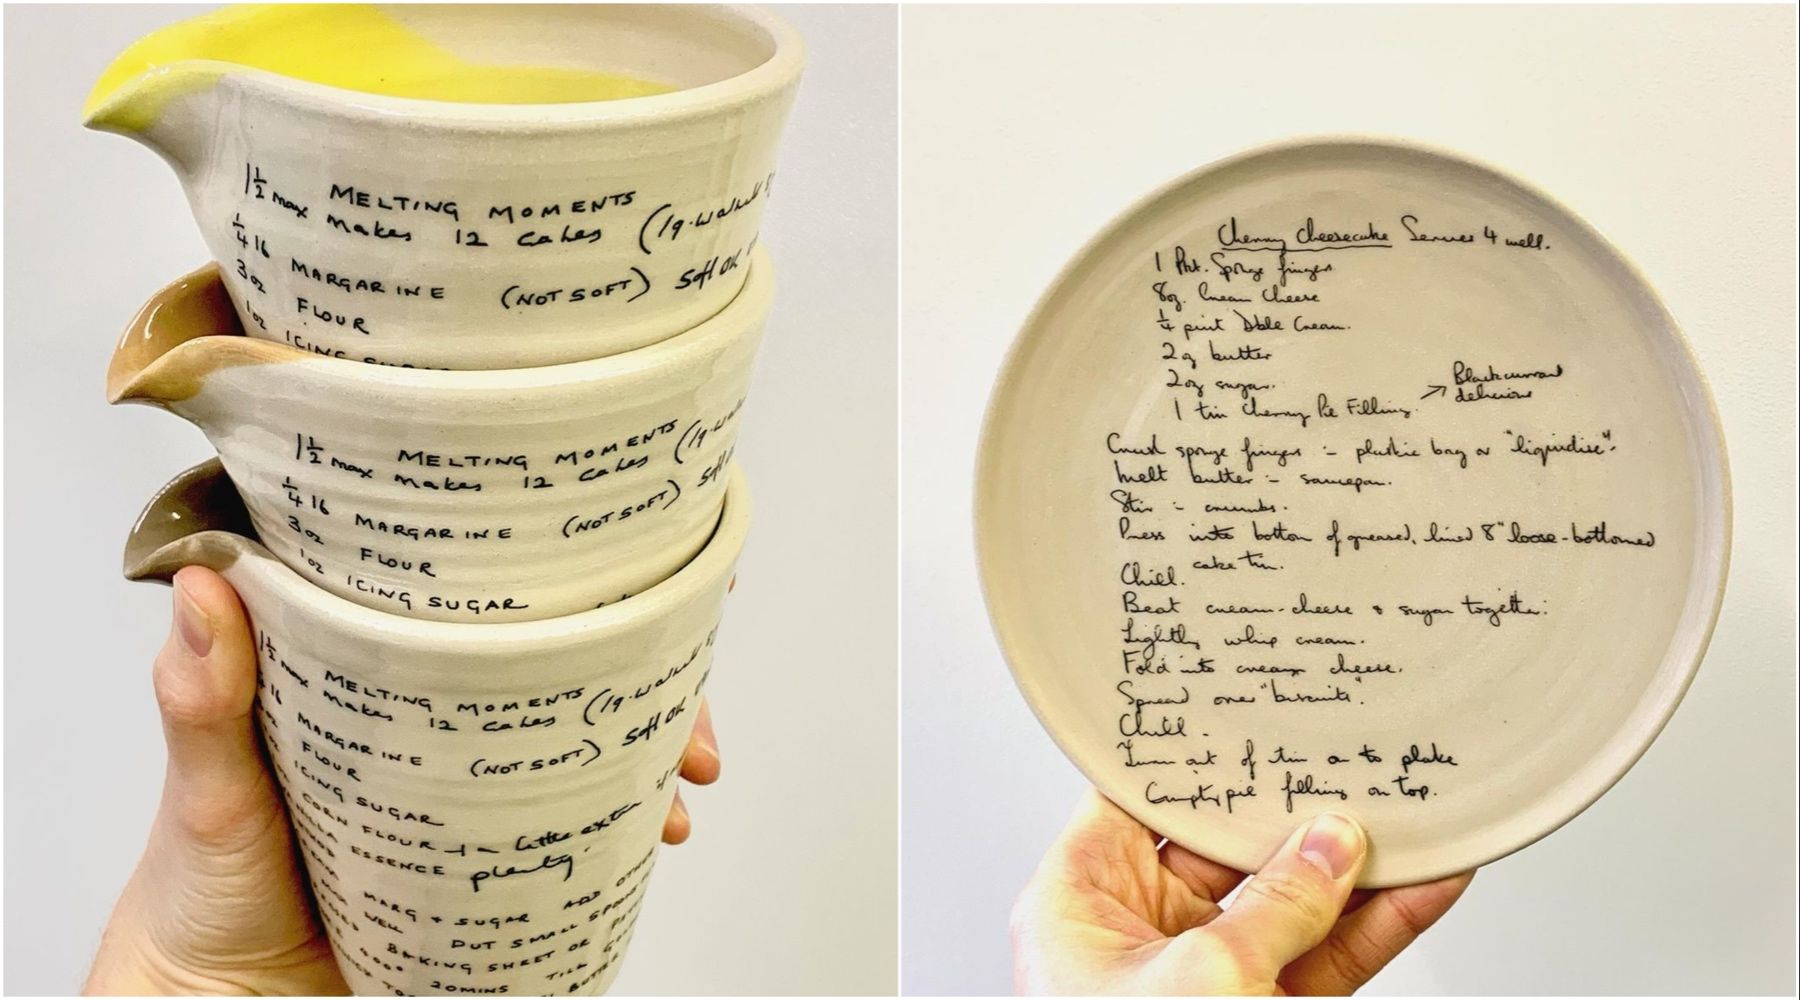 MELTING MOMENTS
1½ max makes 12 cakes (1g. walnut
¼ lb MARGARINE (NOT SOFT) soft OK
3oz FLOUR
1oz ICING SUGAR
MELTING MOMENTS
1½ max makes 12 cakes (1g.
¼ lb MARGARINE (NOT SOFT) soft
3oz FLOUR
1oz ICING SUGAR
MELTING MOMENTS
1½ max makes 12 cakes (1g. walnut
¼ lb MARGARINE (NOT SOFT) soft OK
FLOUR
ICING SUGAR
CORN FLOUR + a little extra if
ESSENCE plenty.
MARG + SUGAR ADD OTHER
WELL PUT SMALL SPOONS
BAKING SHEET OR
20MINS TILL
BUTTER
Cherry Cheesecake Serves 4 well.
1 Pkt. Sponge fingers
8oz. Cream Cheese
¼ pint Dble Cream.
2oz butter
2oz sugar.
1 tin Cherry Pie Filling. → Blackcurrant delicious
Crush sponge fingers :- plastic bag or "liquidise".
Melt butter :- saucepan.
Stir :- crumbs.
Press into bottom of greased, lined 8" loose-bottomed
cake tin.
Chill.
Beat cream-cheese & sugar together.
Lightly whip cream.
Fold into cream cheese.
Spread over "biscuits".
Chill.
Turn out of tin on to plate
Empty pie filling on top.